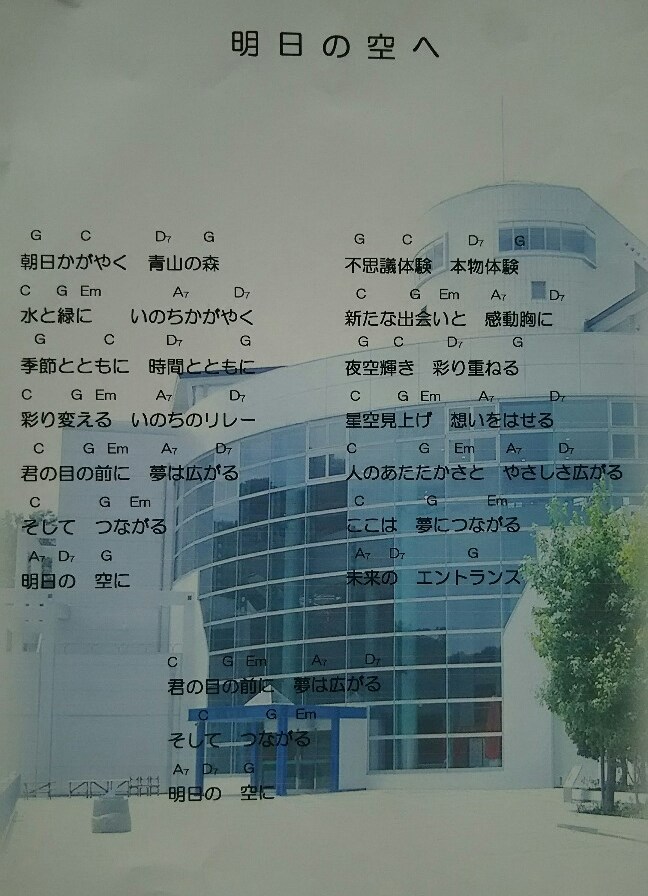 明日の空へ
G C D7 G
朝日かがやく 青山の森
C G Em A7 D7
水と緑に いのちかがやく
G C D7 G
季節とともに 時間とともに
C G Em A7 D7
彩り変える いのちのリレー
C G Em A7 D7
君の目の前に 夢は広がる
C G Em
そして つながる
A7 D7 G
明日の 空に
G C D7 G
不思議体験 本物体験
C G Em A7 D7
新たな出会いと 感動胸に
G C D7 G
夜空輝き 彩り重ねる
C G Em A7 D7
星空見上げ 想いをはせる
C G Em A7 D7
人のあたたかさと やさしさ広がる
C G Em
ここは 夢につながる
A7 D7 G
未来の エントランス
C G Em A7 D7
君の目の前に 夢は広がる
C G Em
そして つながる
A7 D7 G
明日の 空に